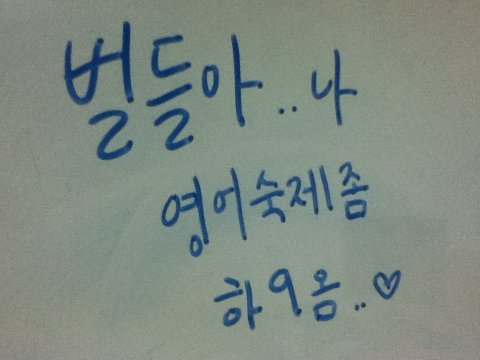 벌들아..나
영어숙제좀
하9옴..♡